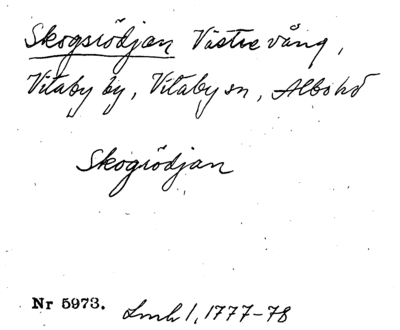 Skogsrödjan Västre vång,
Vitaby by, Vitaby sn, Albo hd
Skogrödjan
Nr 5973. Lmh 1, 1777-78